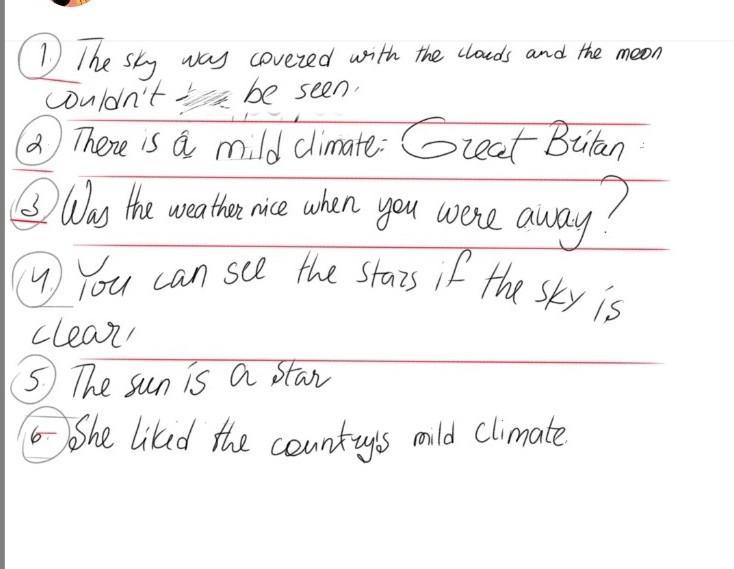 1. The sky was covered with the clouds and the moon
couldn't be seen.
2 There is a mild climate: Great Britan
3 Was the weather nice when you were away?
4. You can see the stars if the sky is
clear,
5. The sun is a star
6. She liked the country's mild climate.